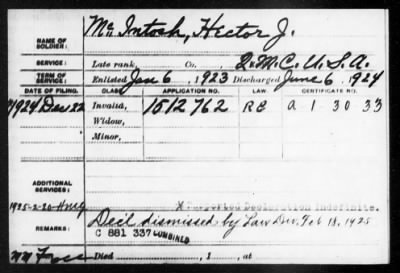 Mc Intosh, Hector J.
NAME OF SOLDIER:
SERVICE: Late rank, Co., Q.M.C. U.S.A.
TERM OF SERVICE: Enlisted Jan 6, 1923 Discharged June 6, 1924
DATE OF FILING. CLASS. APPLICATION NO. LAW. CERTIFICATE NO.
1924 Dec 22 Invalid, 1512762 RE A 1 30 33
Widow,
Minor,
ADDITIONAL SERVICES:
1925-2-20- Declaration Indefinite.
REMARKS: Decl dismissed by Law Div. Feb 18, 1925
C 881 337 COMBINED
Died , 1 , at